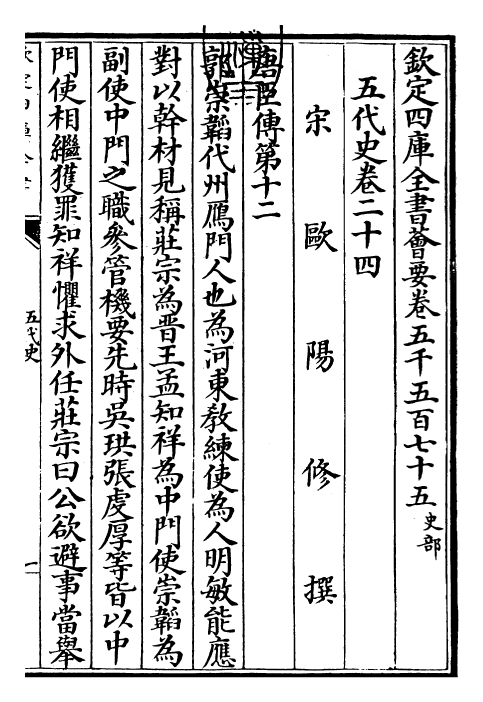 欽定四庫全書薈要卷五千五百七十五 史部
五代史卷二十四
宋歐陽修撰
唐臣傳第十二
郭崇韜代州鴈門人也為河東教練使為人明敏能應
對以幹材見稱莊宗為晋王孟知祥為中門使崇韜為
副使中門之職參管機要先時吳珙張虔厚等皆以中
門使相繼獲罪知祥懼求外任莊宗曰公欲避事當舉
五代史
一